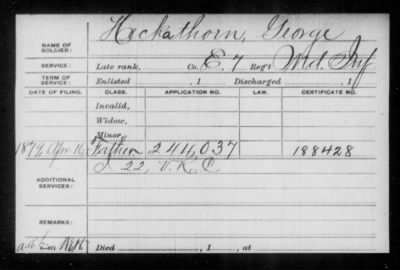 NAME OF SOLDIER: Hackathorn, George
SERVICE: Late rank, Co. E. 7 Reg't Md. Inf
TERM OF SERVICE: Enlisted , 1 Discharged , 1
DATE OF FILING. CLASS. APPLICATION NO. LAW. CERTIFICATE NO.
Invalid,
Widow,
Minor,
1879 Apr. 16 Father 244,037 188428
ADDITIONAL SERVICES: I 22, V.R.C.
REMARKS:
Died , 1 , at